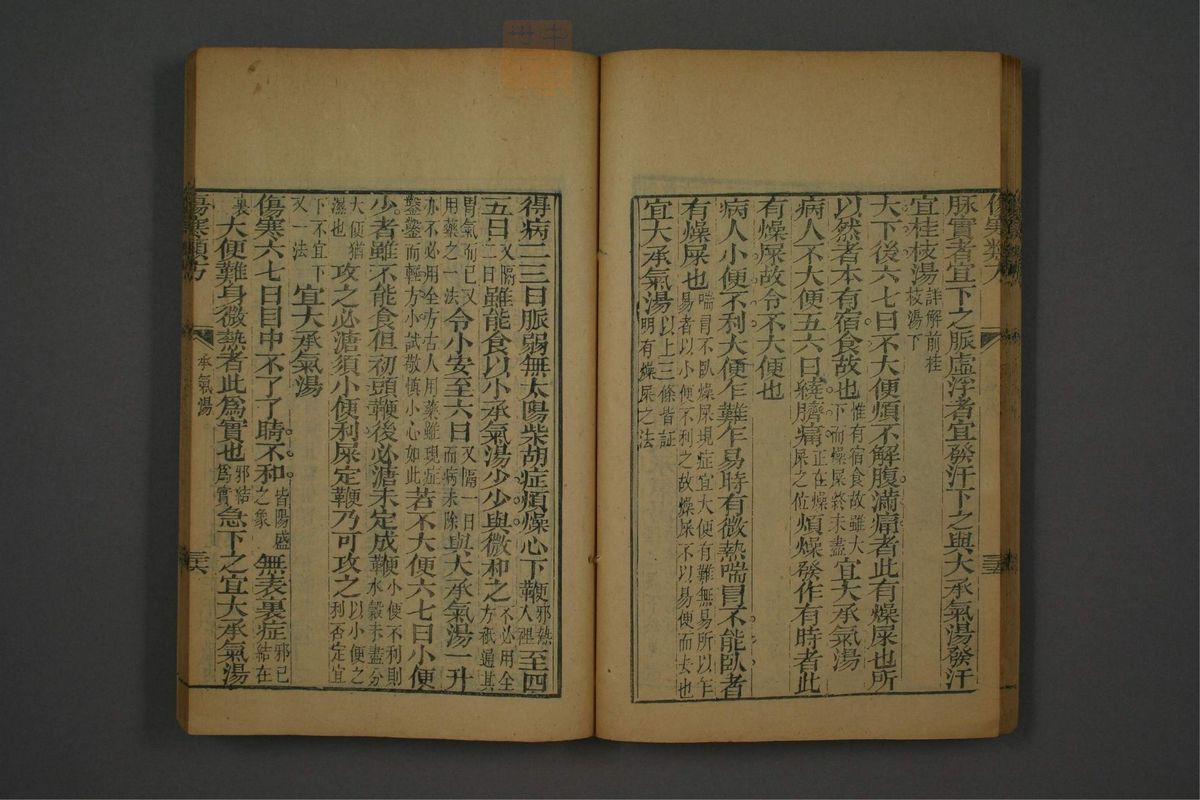 傷寒類方
脉實者宜下之脈虛浮者宜發汗下之與大承氣湯發汗
宜桂枝湯詳解前桂枝湯下
大下後六七日不大便煩不解腹滿痛者此有燥屎也所
以然者本有宿食故也惟有宿食故雖大下而燥屎終未盡宜大承氣湯
病人不大便五六日繞臍痛正在燥屎之位煩燥發作有時者此
有燥屎故令不大便也
病人小便不利大便乍難乍易時有微熱喘冒不能臥者
有燥屎也喘冒不臥燥屎現症宜大便有難無易所以乍易者以小便不利之故燥屎不以易便而去也
宜大承氣湯以上三條皆証明有燥屎之法
三五
得病二三日脈弱無太陽柴胡症煩燥心下鞕邪熱入裡至四
五日又隔二日雖能食以小承氣湯少少與微和之不必用全方祇通其
胃氣而已又用藥之一法令小安至六日又隔一日而病未除與大承氣湯一升
亦不必用全方古人用藥雖現症鑿鑿而輕方小試敬慎小心如此若不大便六七日小便
少者雖不能食但初頭鞕後必溏未定成鞕小便不利則水穀未盡分
大便猶濕也攻之必溏須小便利屎定鞕乃可攻之以小便之利否定宜
下不宜下又一法宜大承氣湯
傷寒六七日目中不了了睛不和皆陽盛之象無表裏症邪已結在
裏大便難身微熱者此爲實也邪結爲實急下之宜大承氣湯
傷寒類方
承氣湯
三六